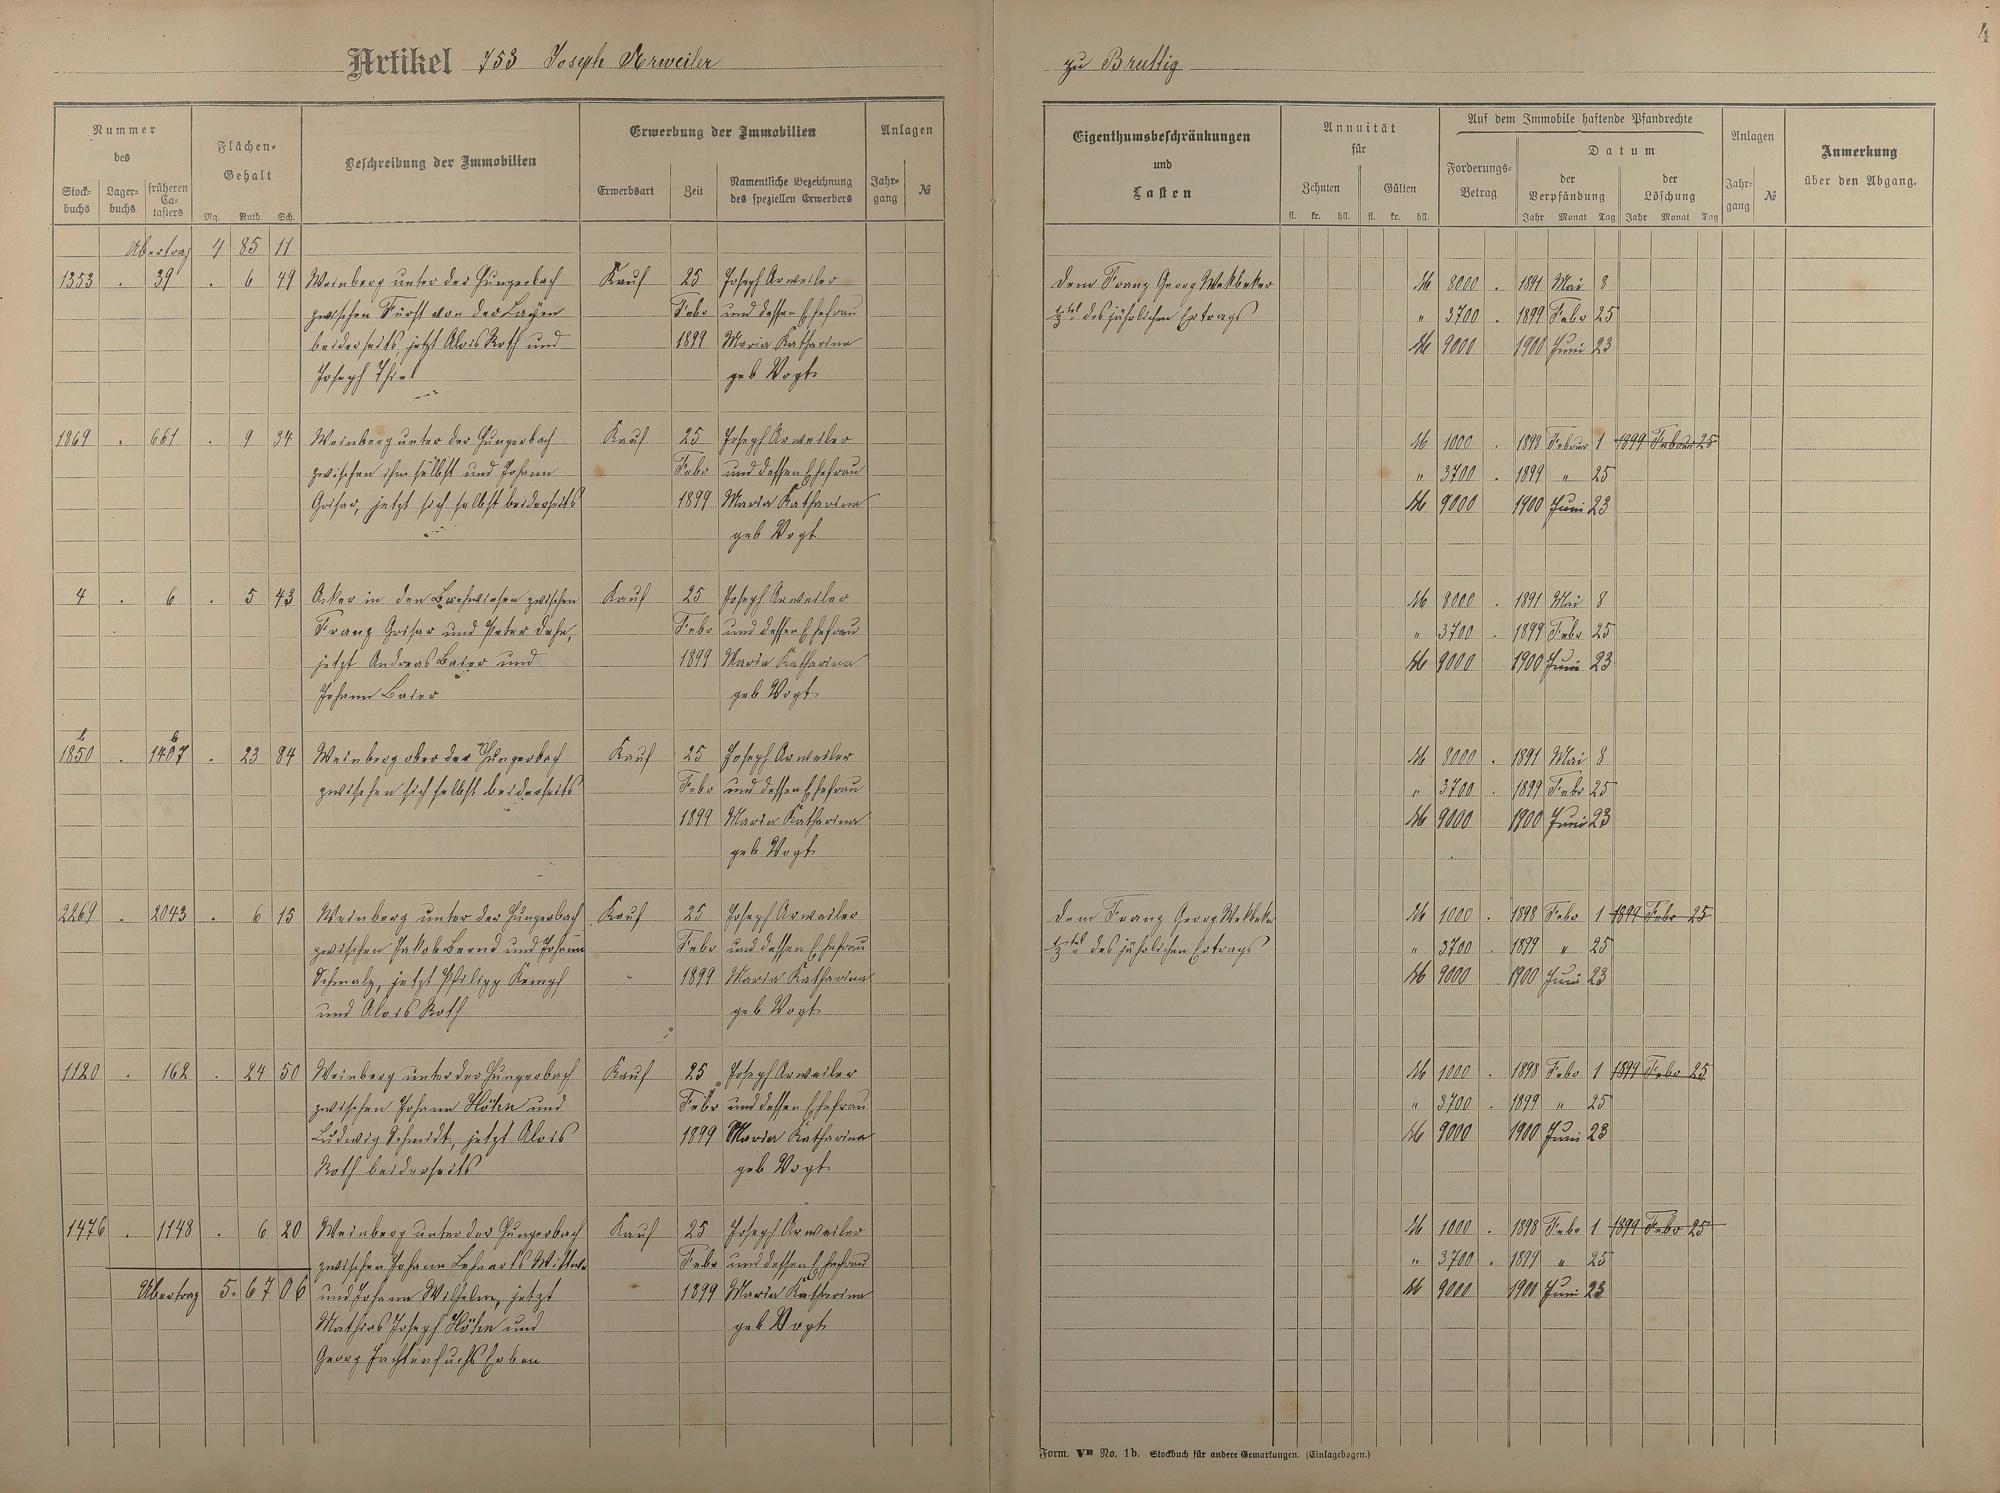 Artikel 753 Joseph Arweiler
zu Bruttig
4
Nummer des
Stockbuchs
Lagerbuchs
früheren Catasters
Flächen-Gehalt
Mg. Ruth. Sch.
Beschreibung der Immobilien
Erwerbung der Immobilien
Erwerbsart
Zeit
Namentliche Bezeichnung des speziellen Erwerbers
Anlagen
Jahrgang
№
Eigenthumsbeschränkungen und Lasten
Annuität für
Zehnten
fl. kr. hll.
Gülten
fl. kr. hll.
Auf dem Immobile haftende Pfandrechte
Forderungs-Betrag
Datum
der Verpfändung
Jahr Monat Tag
der Löschung
Jahr Monat Tag
Anlagen
Jahrgang
№
Anmerkung über den Abgang.
Übertrag 4 85 11
1353 . 39 . 6 49 Weinberg unter der Hungerbach Kauf 25 Joseph Arweiler
zwischen Fürst von der Layen Febr und dessen Ehefrau
beiderseits, jetzt Alois Roth und 1899 Maria Katharina
Joseph Thiel geb Vogt
dem Franz Georg M 8000 . 1891 Mai 8
des jährlichen Ertrags " 3700 . 1899 Febr 25
M 9000 1900 Juni 23
1869 . 661 . 9 34 Weinberg unter der Hungerbach Kauf 25 Joseph Arweiler
zwischen ihm selbst und Johann Febr und dessen Ehefrau
Gossar, jetzt sich selbst beiderseits 1899 Maria Katharina
geb Vogt
M 1000 1898 Februar 1 1899 Februar 25
" 3700 . 1899 " 25
M 9000 1900 Juni 23
4 . 6 . 5 43 Acker in den zwischen Kauf 25 Joseph Arweiler
Franz Gossar und Peter Dehn, Febr und dessen Ehefrau
jetzt Andreas Baier und 1899 Maria Katharina
Johann Baier geb Vogt
M 8000 . 1891 Mai 8
" 3700 . 1899 Febr 25
M 9000 1900 Juni 23
b b
1850 . 1407 . 23 84 Weinberg ober der Hungerbach Kauf 25 Joseph Arweiler
zwischen sich selbst beiderseits Febr und dessen Ehefrau
1899 Maria Katharina
geb Vogt
M 8000 . 1891 Mai 8
" 3700 . 1899 Febr 25
M 9000 1900 Juni 23
2269 . 2043 . 6 15 Weinberg unter der Hungerbach Kauf 25 Joseph Arweiler
zwischen Jakob Bernd und Johann Febr und dessen Ehefrau
Schmalz, jetzt Philipp Kempf 1899 Maria Katharina
und Alois Roth geb Vogt
dem Franz Georg M 1000 . 1898 Febr 1 1899 Febr 25
des jährlichen Ertrags " 3700 . 1899 " 25
M 9000 . 1900 Juni 23
1120 . 162 . 24 50 Weinberg unter der Hungerbach Kauf 25 Joseph Arweiler
zwischen Johann Hötin und Febr und dessen Ehefrau
Ludwig Schmidt, jetzt Alois 1899 Maria Katharina
Roth beiderseits geb Vogt
M 1000 . 1898 Febr 1 1899 Febr 25
" 3700 . 1899 " 25
M 9000 1900 Juni 23
1476 . 1148 . 6 20 Weinberg unter der Hungerbach Kauf 25 Joseph Arweiler
zwischen Johann Lehnarts Wittwe Febr und dessen Ehefrau
Übertrag 5. 67 06 und Johann Wilhelm, jetzt 1899 Maria Katharina
Mathias Joseph Hötin und geb Vogt
Georg Erben
M 1000 . 1898 Febr 1 1899 Febr 25
" 3700 . 1899 " 25
M 9000 1900 Juni 23
Form. VB No. 1b. Stockbuch für andere Gemarkungen. (Einlagebogen.)